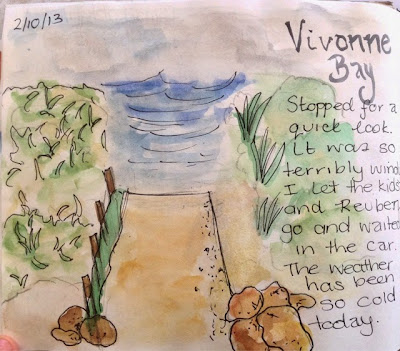 2/10/13
Vivonne
Bay
Stopped for a
quick look.
It was so
terribly wind
I let the kids
and Reuben
go and waited
in the car.
The weather
has been
so cold
today.